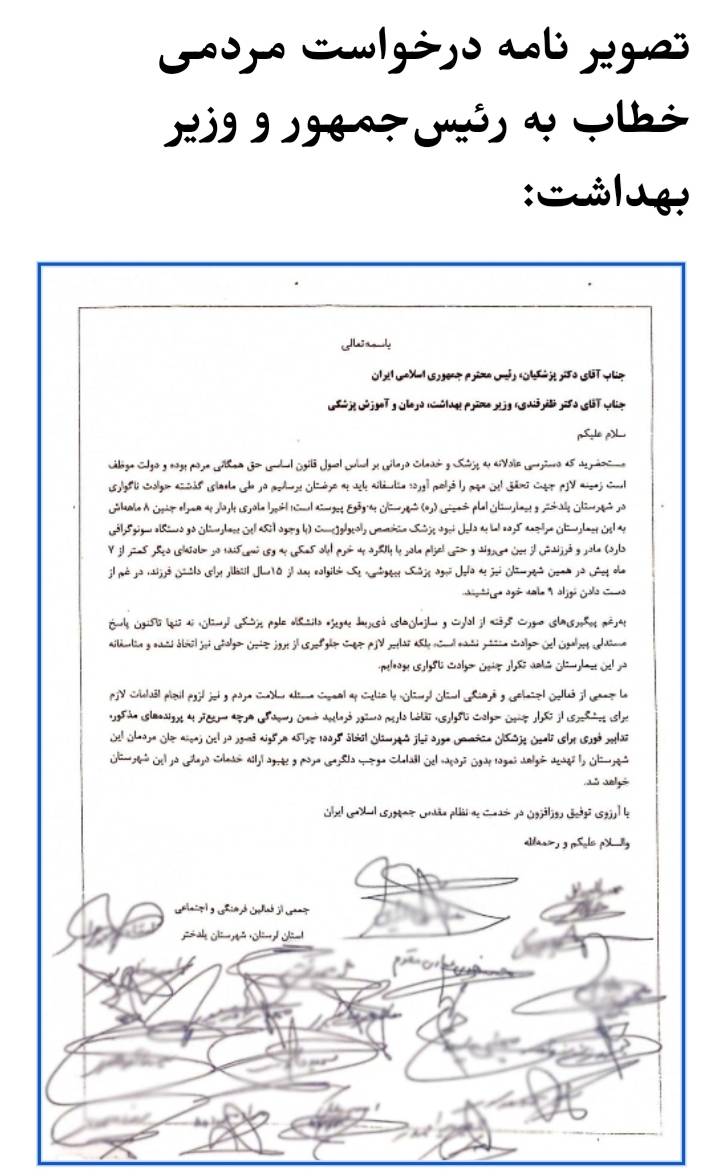 تصویر نامه درخواست مردمی
خطاب به رئیس‌جمهور و وزیر
بهداشت:
باسمه‌تعالی
جناب آقای دکتر پزشکیان، رئیس محترم جمهوری اسلامی ایران
جناب آقای دکتر ظفرقندی، وزیر محترم بهداشت، درمان و آموزش پزشکی
سلام علیکم
مستحضرید که دسترسی عادلانه به پزشک و خدمات درمانی بر اساس اصول قانون اساسی حق همگانی مردم بوده و دولت موظف
است زمینه لازم جهت تحقق این مهم را فراهم آورد؛ متاسفانه باید به عرضتان برسانیم در طی ماه‌های گذشته حوادث ناگواری
در شهرستان پلدختر و بیمارستان امام خمینی (ره) شهرستان به‌وقوع پیوسته است؛ اخیرا مادری باردار به همراه جنین ۸ ماهه‌اش
به این بیمارستان مراجعه کرده اما به دلیل نبود پزشک متخصص رادیولوژیست (با وجود آنکه این بیمارستان دو دستگاه سونوگرافی
دارد) مادر و فرزندش از بین می‌روند و حتی اعزام مادر با بالگرد به خرم آباد کمکی به وی نمی‌کند؛ در حادثه‌ای دیگر کمتر از ۷
ماه پیش در همین شهرستان نیز به دلیل نبود پزشک بیهوشی، یک خانواده بعد از ۱۵سال انتظار برای داشتن فرزند، در غم از
دست دادن نوزاد ۹ ماهه خود می‌نشیند.
به‌رغم پیگیری‌های صورت گرفته از ادارت و سازمان‌های ذی‌ربط به‌ویژه دانشگاه علوم پزشکی لرستان، نه تنها تاکنون پاسخ
مستدلی پیرامون این حوادث منتشر نشده است، بلکه تدابیر لازم جهت جلوگیری از بروز چنین حوادثی نیز اتخاذ نشده و متاسفانه
در این بیمارستان شاهد تکرار چنین حوادث ناگواری بوده‌ایم.
ما جمعی از فعالین اجتماعی و فرهنگی استان لرستان، با عنایت به اهمیت مسئله سلامت مردم و نیز لزوم انجام اقدامات لازم
برای پیشگیری از تکرار چنین حوادث ناگواری، تقاضا داریم دستور فرمایید ضمن رسیدگی هرچه سریع‌تر به پرونده‌های مذکور،
تدابیر فوری برای تامین پزشکان متخصص مورد نیاز شهرستان اتخاذ گردد؛ چراکه هرگونه قصور در این زمینه جان مردمان این
شهرستان را تهدید خواهد نمود؛ بدون تردید، این اقدامات موجب دلگرمی مردم و بهبود ارائه خدمات درمانی در این شهرستان
خواهد شد.
با آرزوی توفیق روزافزون در خدمت به نظام مقدس جمهوری اسلامی ایران
والسلام علیکم و رحمه‌الله
جمعی از فعالین فرهنگی و اجتماعی
استان لرستان، شهرستان پلدختر